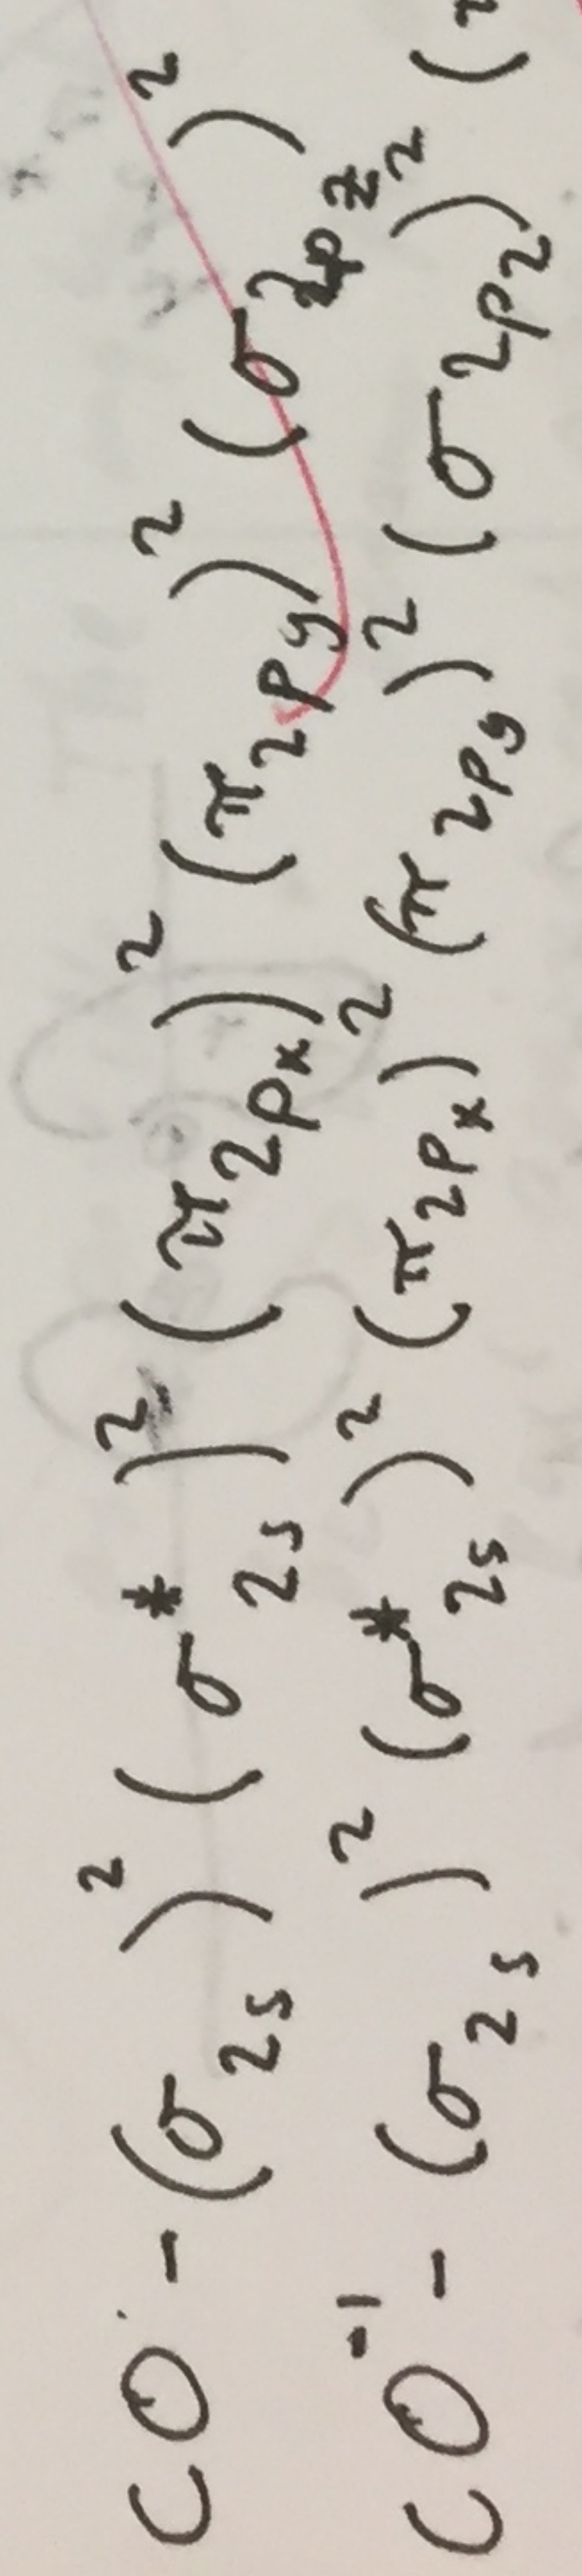 CO - (σ2s)² (σ*2s)² (π2px)² (π2py)² (σ2pz)²
CO⁻¹ - (σ2s)² (σ*2s)² (π2px)² (π2py)² (σ2pz)² (